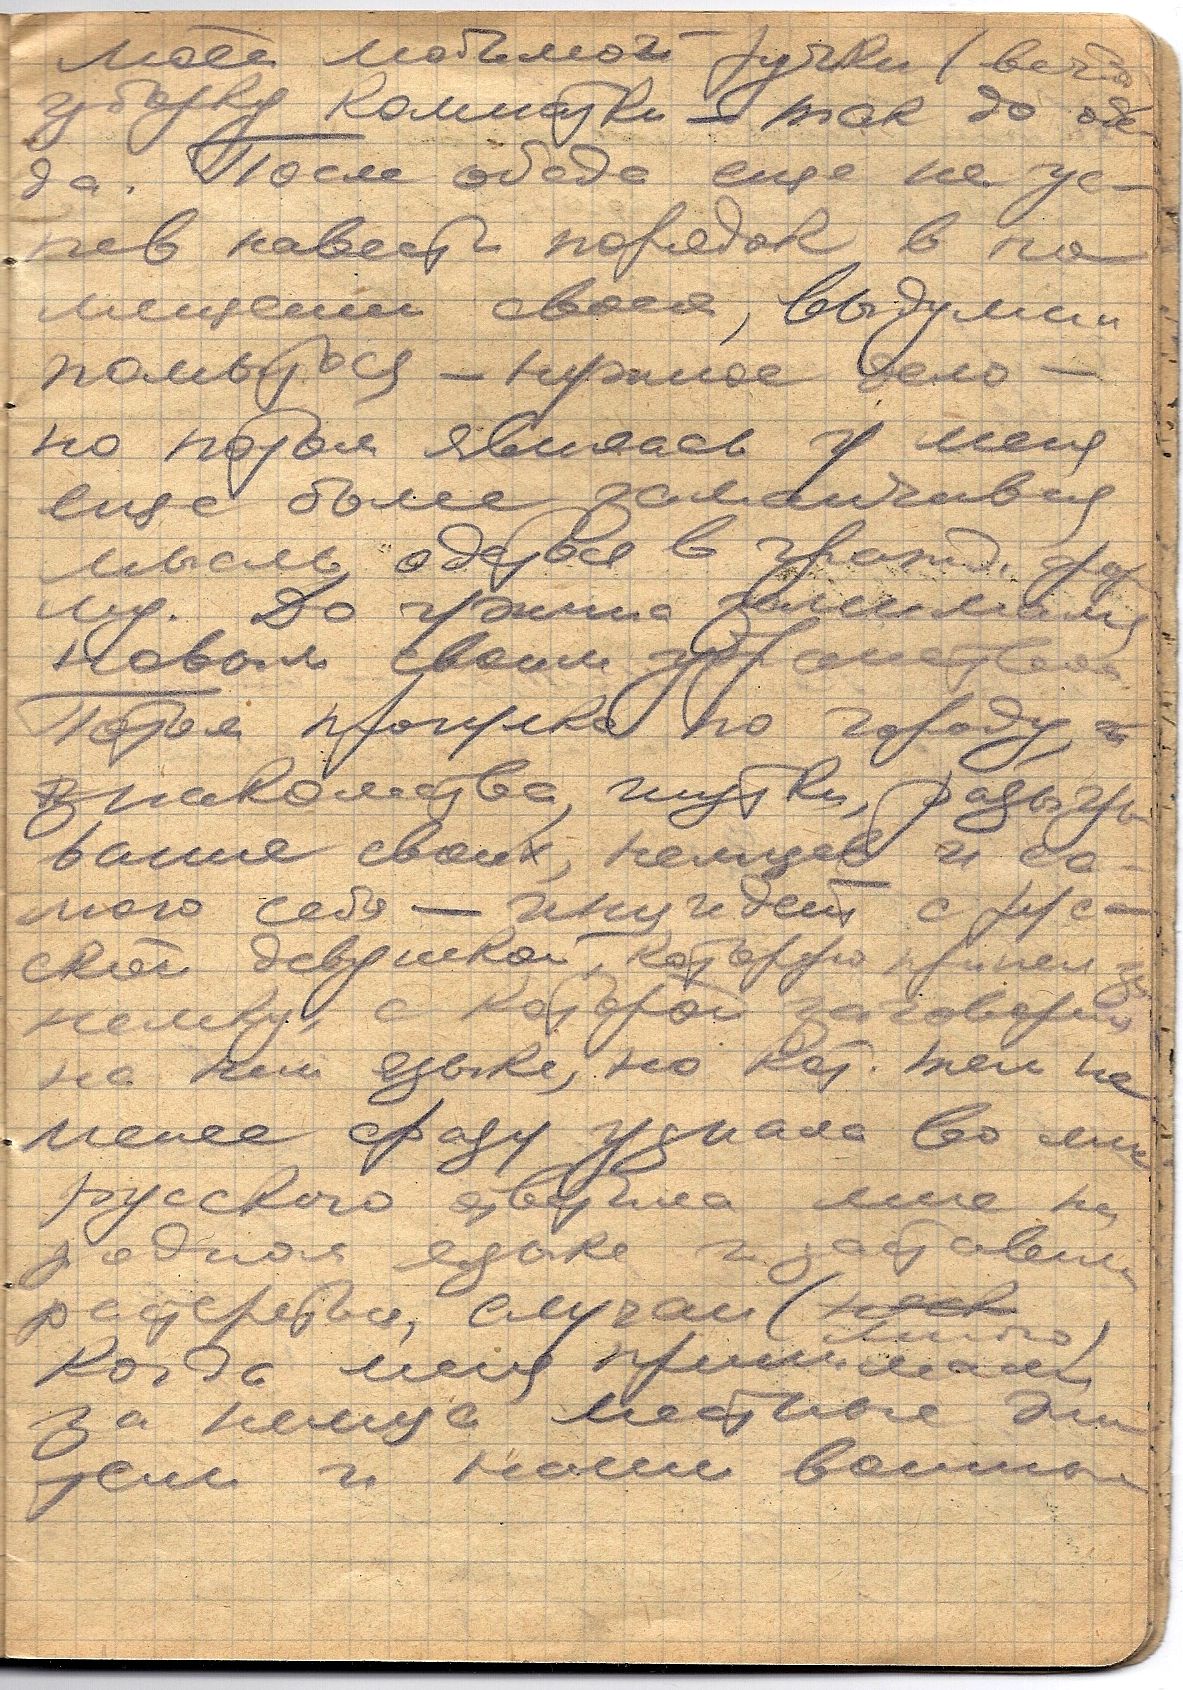 моей любимой ручки (вечно
уборку комнатки – так до обе
да. После обеда еще не ус–
пев навести порядок в по
мещении своем, выдумал
помыться – нужное дело –
но потом явилась у меня
еще более заманчивая
мысль одеться в гражд. фор
му. До ужина занимался
новым своим убранством
Потом прогулка по городу,
знакомства, шутки, разыгры
вание своих, немцев и са–
мого себя – инцидент с рус–
ской девушкой, которую принял за
немку, с которой заговорил
на нем языке, но кот. тем не
менее сразу узнала во мне
русского ответила мне на
родном языке и заставила
растеряться, случаи (
много)
когда меня принимали
за немца местные жи
тели и наши военные